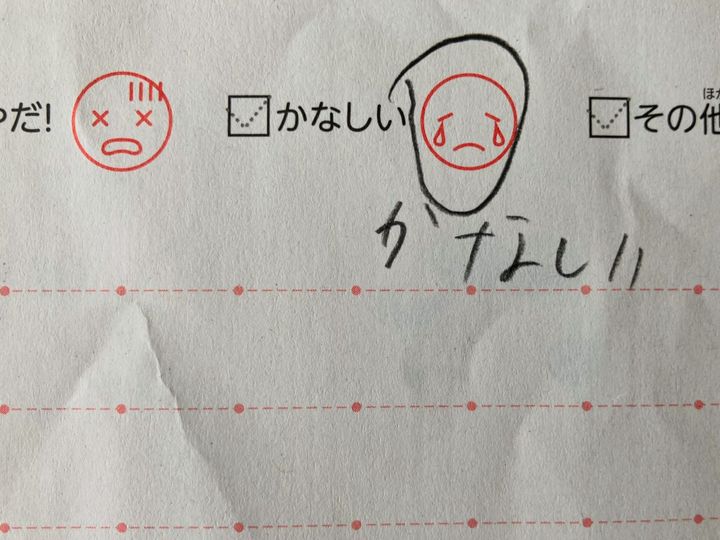 ほか
やだ! かなしい その他
かなしい